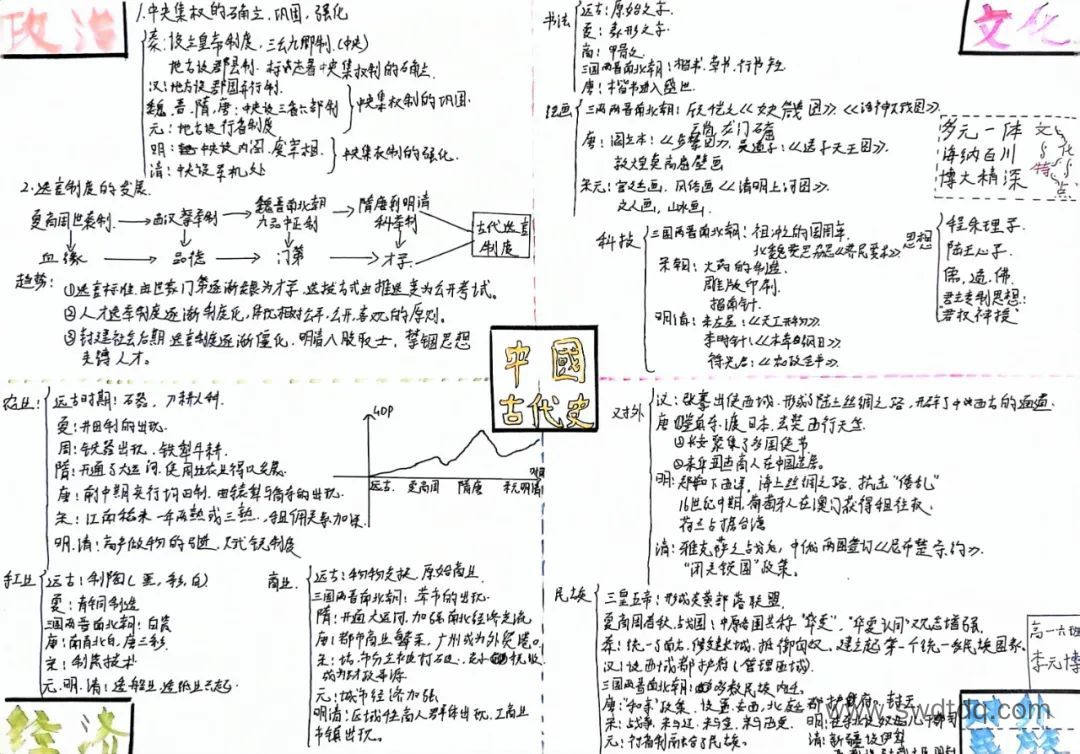 政治
1.中央集权的确立、巩固、强化
秦:设立皇帝制度,三公九卿制.(中央)
地方设郡县制.标志着中央集权制的确立.
汉:地方设郡国并行制.
魏.晋.隋.唐:中央设三省六部制
元:地方设行省制度
中央集权制的巩固.
明:中央设内阁.废宰相.
清:中央设军机处
中央集权制的强化.
2.选官制度的发展.
夏商周世袭制
西汉察举制
魏晋南北朝
九品中正制
隋唐到明清
科举制
古代选官
制度
血缘
品德
门第
才学
趋势:
①选官标准.由世袭门第逐渐发展为才学.选拔方式由推选变为公开考试。
②人才选举制度逐渐制度化,体现相对公平.公开.客观的原则。
③封建社会后期选官制度逐渐僵化.明清八股取士,禁锢思想
失得人才。
文化
书法
远古:原始文字.
夏:象形文字.
商:甲骨文.
三国两晋南北朝:楷书、草书、行书产生
唐:楷书进入盛世
绘画
三国两晋南北朝:顾恺之《女史箴图》.《洛神赋图》.
洛阳龙门石窟
唐:阎立本:《步辇图》,吴道子:《送子天王图》.
敦煌莫高窟壁画
宋元:宫廷画.风俗画《清明上河图》.
文人画,山水画.
多元一体
海纳百川
博大精深
文化
特点
科技
三国两晋南北朝:祖冲之的圆周率.
北魏贾思勰《齐民要术》
宋朝:火药的制造.
雕版印刷.
指南针.
明清:宋应星:《天工开物》
李时针:《本草纲目》
徐光启:《农政全书》
思想
程朱理学.
陆王心学.
儒,道,佛.
君主专制思想:
"君权神授"
中國
古代史
农业:
远古时期:石器,刀耕火种.
夏:井田制的出现.
周:铁器出现.铁犁牛耕.
隋:开通了大运河.使周边农业得以发展.
唐:前中期实行均田制.曲辕犁与筒车的出现.
宋:江南稻米一年两熟或三熟.租佃关系加深.
明.清:高产做物的引进.
GDP
远古.
夏商周
隋唐
宋元明清
手工业
远古:制陶(黑,彩,白)
夏:青铜制造
三国两晋南北朝:白瓷
唐:南青北白,唐三彩.
元.明.清:造船业.造纸业兴起.
商业
远古:物物交换.原始商业.
三国两晋南北朝:草市的出现.
隋:开通大运河,加强南北经济交流
唐:都市商业繁荣,广州成为外贸港。
宋:坊.市分立被打破.
成为财政来源.
元:城市经济加强.
明清:区域性商人群体出现,工商业
市镇出现。
经济
对外
汉:张骞出使西域.形成陆上丝绸之路,开辟了中西方的通道.
唐①鉴真东渡日本,玄奘西行天竺.
②长安聚集了各国使节
③来自阿拉伯商人在中国定居。
明:郑和下西洋,海上丝绸之路,抗击"倭乱"
16世纪中期,葡萄牙人在澳门获得租住权.
荷兰占据台湾
清:雅克萨之战后,中俄两国签订《尼布楚条约》.
"闭关锁国"政策。
民族
三皇五帝:形成炎黄部落联盟.
夏商周春秋.战国:中原各国共称"华夏","华夏认同"观念增强.
秦:统一了南方.修建长城,抵御匈奴.建立起第一个统一多民族国家.
汉:设西域都护府(管理西域)
三国两晋南北朝:少数民族内迁.
唐:"和亲"政策.设置安西,北庭
元:行省制
清:新疆设伊犁
高一六班
李元博
www.swdtoq.com